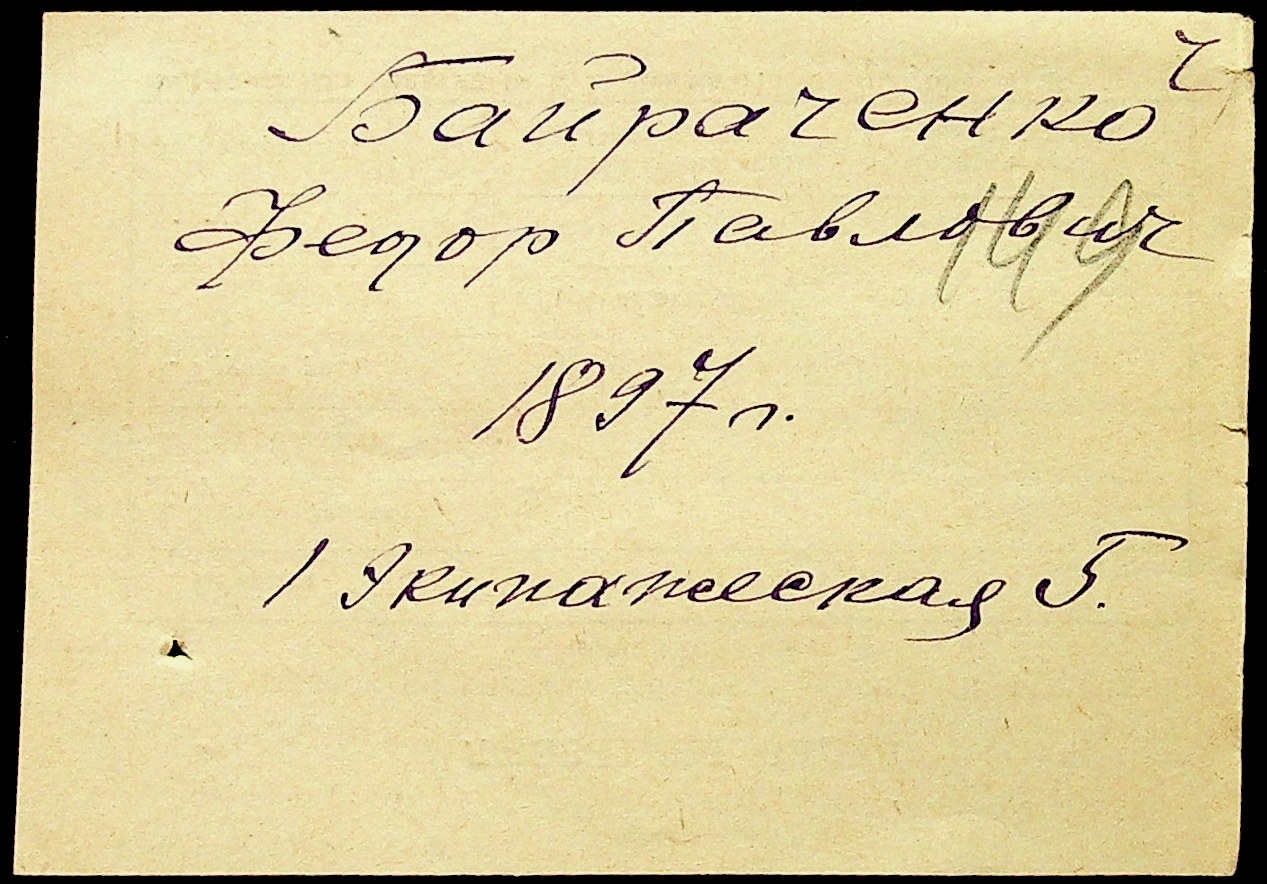 ч
Байраченко
Федор Павлович
149
1897 г.
1 Экипажеская 5.